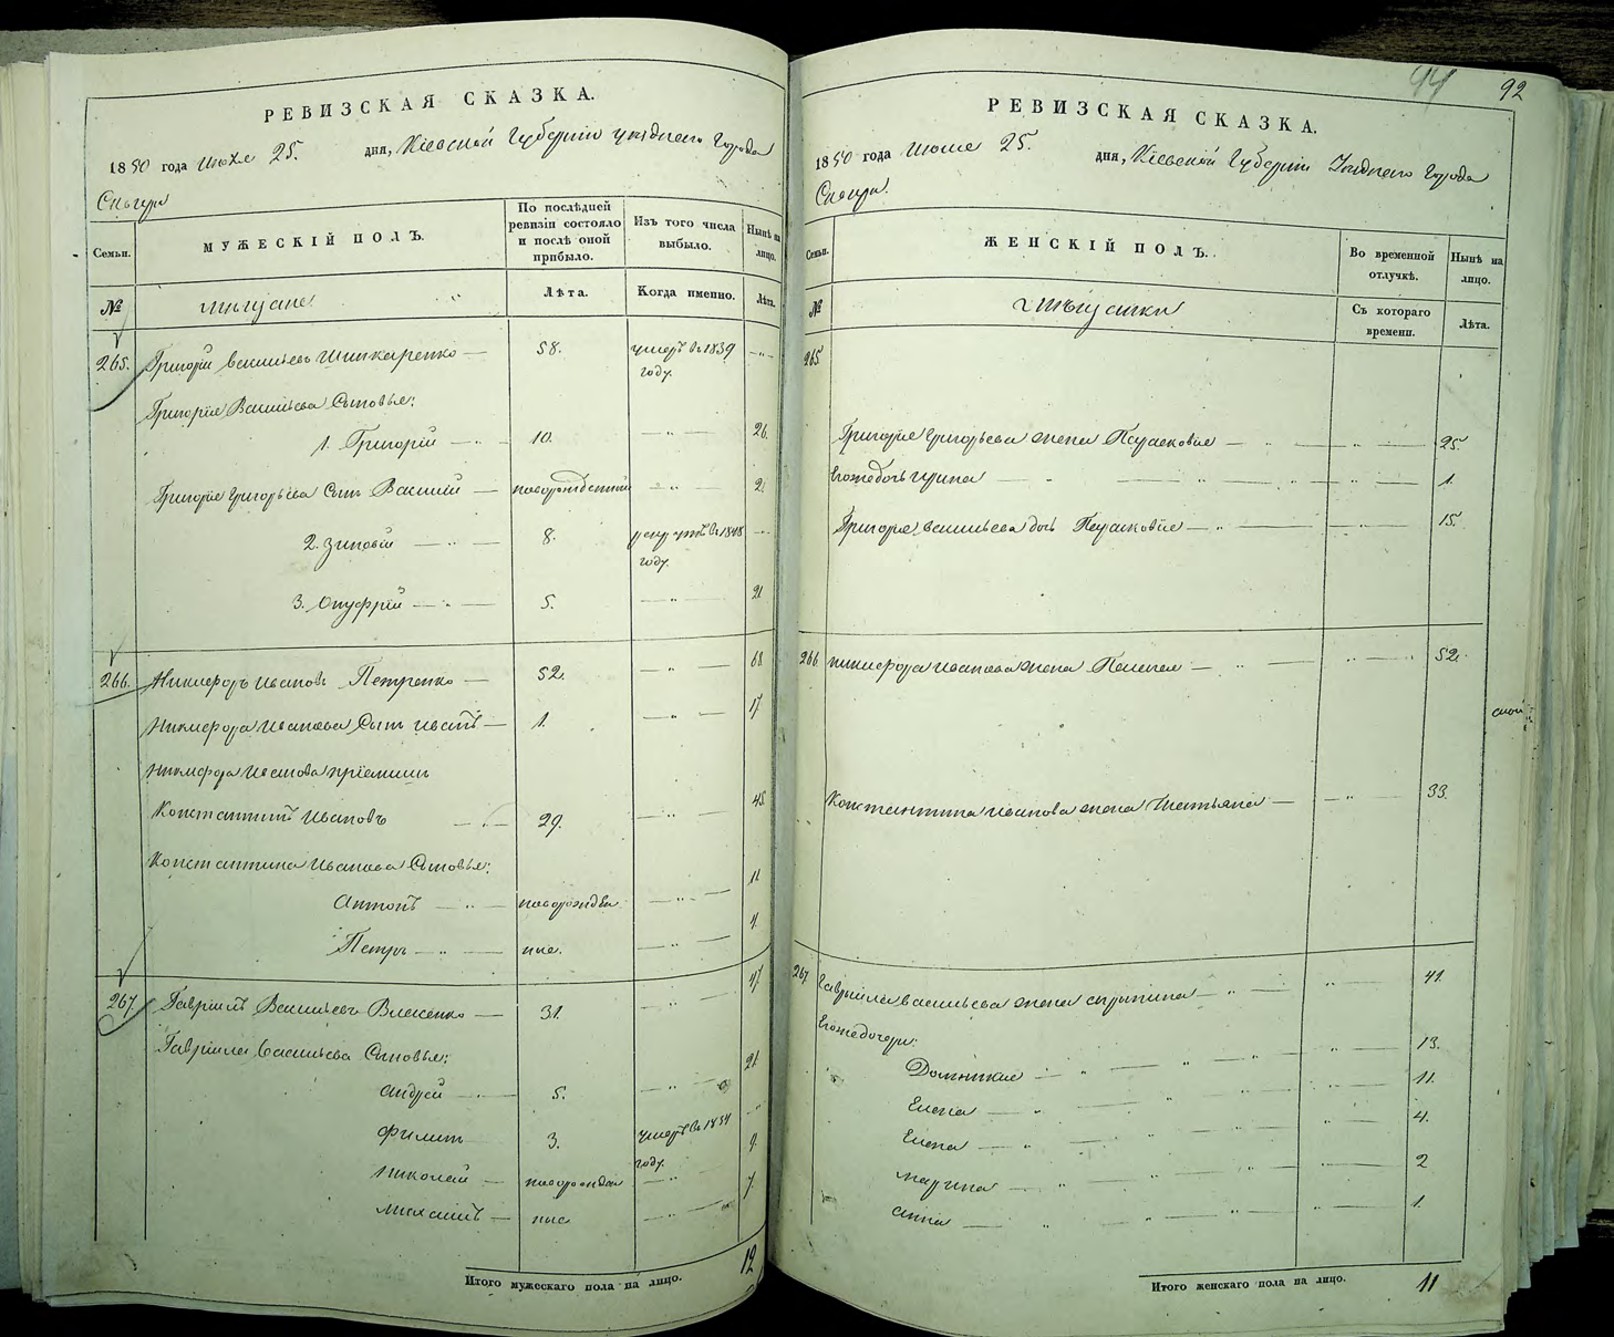 РЕВИЗСКАЯ СКАЗКА.
1850 года Июля 25. дня, Кіевской Губерніи уѣзднаго Города
Сквиры
Семьи.
МУЖЕСКІЙ ПОЛЪ.
По послѣдней
ревизіи состояло
и послѣ оной
прибыло.
Изъ того числа
выбыло.
Нынѣ на
лицо.
№
мѣщане
Лѣта.
Когда именно.
Лѣта.
265. Григорій Васильевъ Шинкаренко — 58. умеръ въ 1839 — „ —
году.
Григорія Васильева Сыновья:
1. Григорій — „ — 10. — „ — 26.
Григорія Григорьева Сынъ Василій — новорожденный — „ — 2.
2. Зиновій — „ — 8. въ 1848 — „ —
году.
3. Онуфрій — „ — 5. — „ — 21
266. Никифоръ Ивановъ Петренко — 52. — „ — 68
Никифора Иванова Сынъ Иванъ — 1. — „ — 17
Никифора Иванова пріемышъ
Константинъ Ивановъ — „ — 29. — „ — 45.
Константина Иванова Сыновья:
Антонъ — „ — новорожден — „ — 11
Петръ — „ — ные. — „ — 4.
267. Гавріилъ Васильевъ Власенко — 31. — „ — 47
Гавріила Васильева Сыновья:
Андрей — „ — 5. — „ — 21.
Филипъ 3. умеръ въ 1834 „
году.
Николай — новорожден — „ 9.
Михаилъ — ные — „ — 7.
Итого мужескаго пола на лицо. 12
94 92
РЕВИЗСКАЯ СКАЗКА.
1850 года Июля 25. дня, Кіевской Губерніи Уѣзднаго Города
Сквиры.
Семьи.
ЖЕНСКІЙ ПОЛЪ.
Во временной
отлучкѣ.
Нынѣ на
лицо.
№
мѣщанки
Съ котораго
времени.
Лѣта.
265
Григорія Григорьева жена Параскевія — „ — „ — 25.
Егоже дочь Ирина — „ — „ — 1.
Григорія Васильева дочь Параскевія — „ — „ — 15.
266 Никифора Иванова жена Пелагея — „ — „ — 52.
Константина Иванова жена Татьяна — „ — 33.
267 Гавріила Васильева жена — „ — „ — 41.
Егоже дочери:
Домникія — „ — „ — „ — 13.
Елена — „ — „ — 11.
Елена — „ — „ — 4.
Марина — „ — „ — 2
Анна — „ — „ — 1.
Итого женскаго пола на лицо. 11